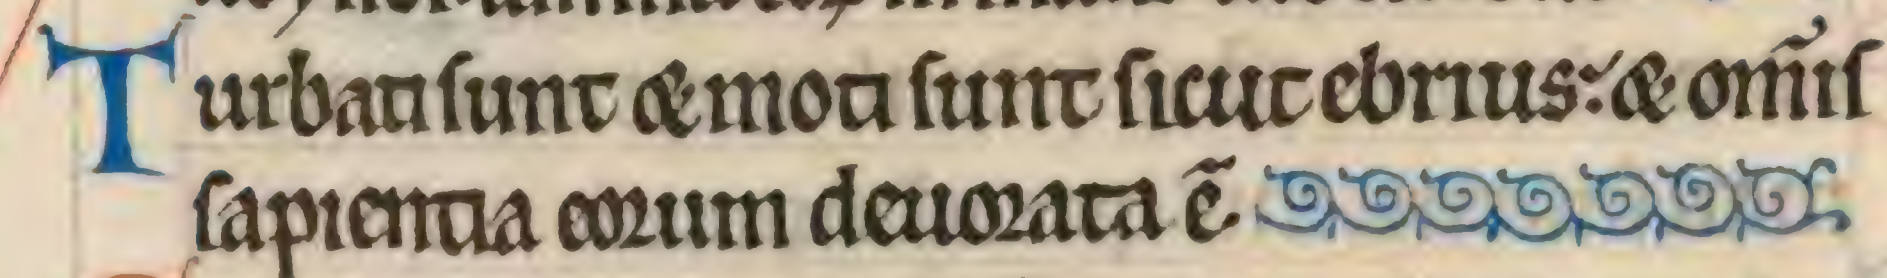 Turbati sunt & moti sunt sicut ebrius: & om̄is
sapientia eorum deuorata ē